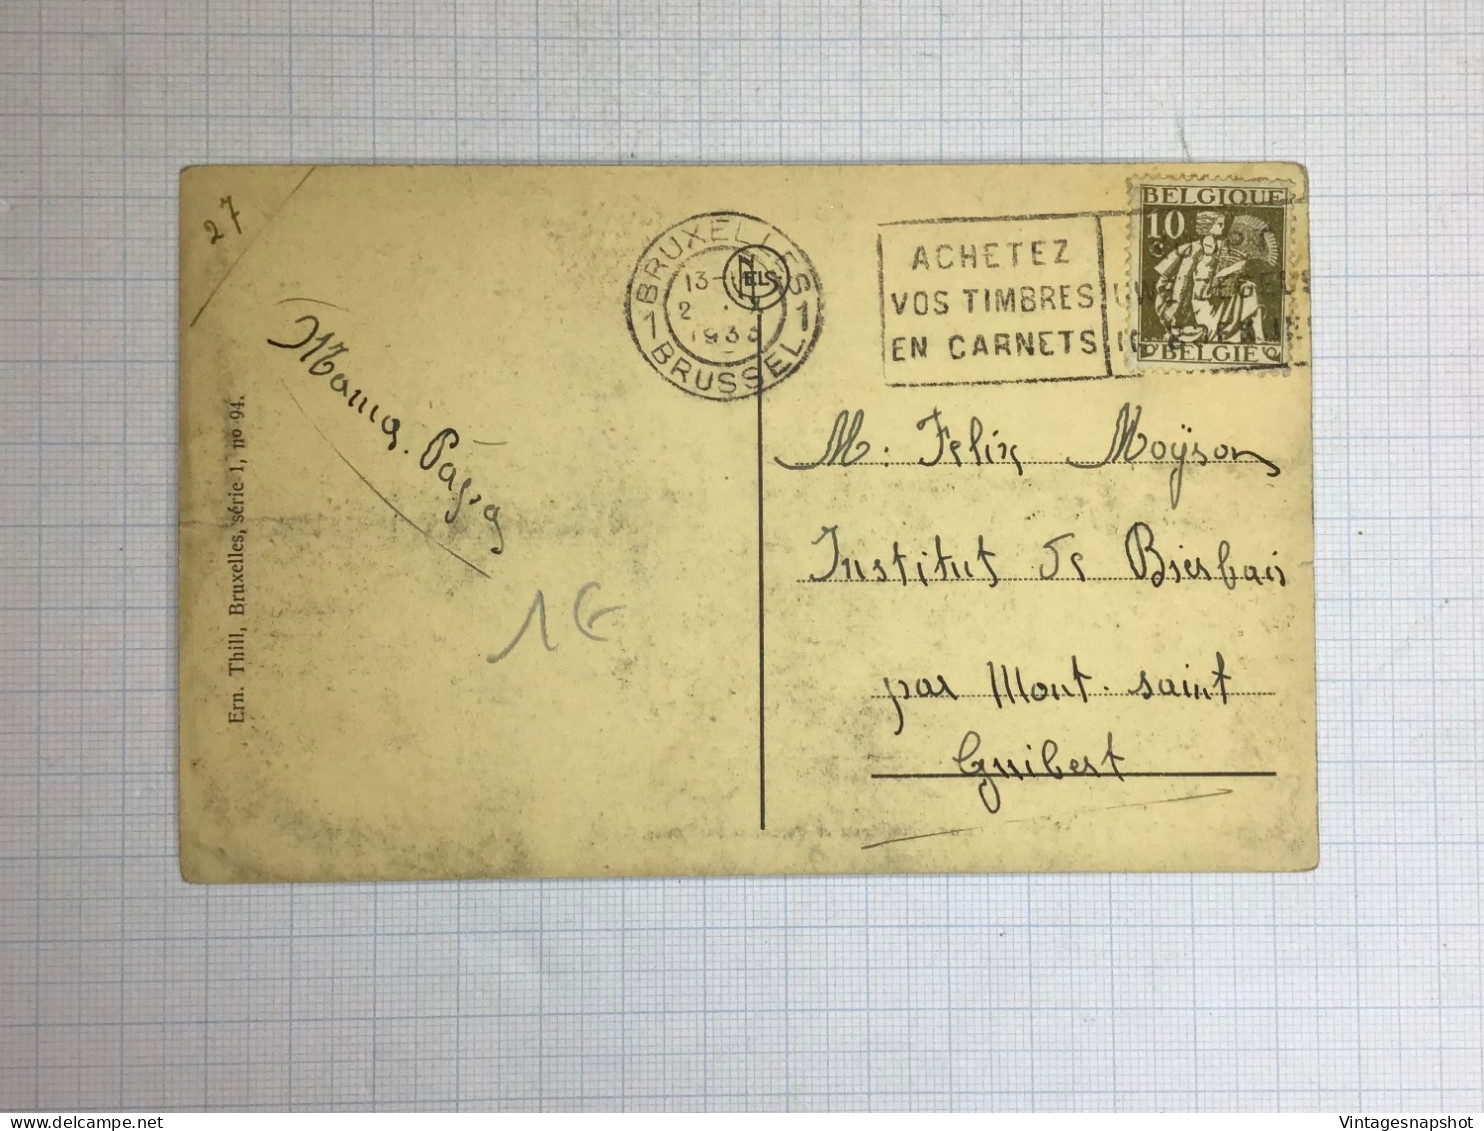 27
BRUXELLES
13-
NELS
2
1933
1 BRUSSEL 1
ACHETEZ
VOS TIMBRES
EN CARNETS
BELGIQUE
10
BELGIE
Mama. Papa
M. Felix Moÿson
Institut de Bierbais
par Mont-saint
Guibert
Ern. Thill, Bruxelles, série 1, nº 94.
Vintagesnapshot